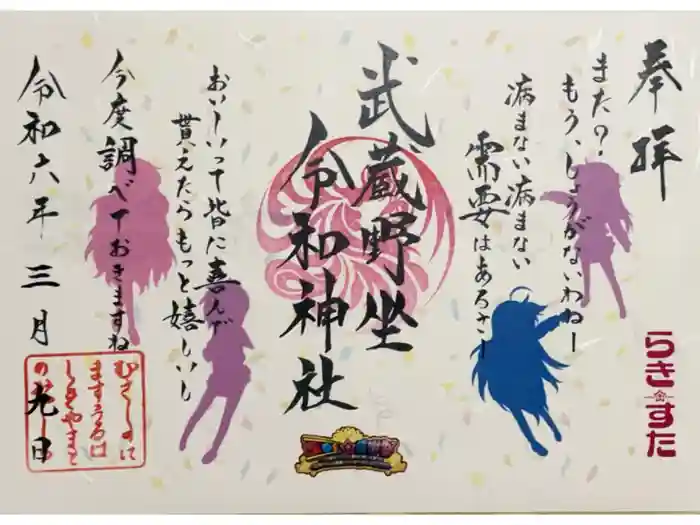 奉拝
また?
もう、しょうがないわねー
病まない病まない
需要はあるさー
武蔵野坐
令和神社
おいしいって皆に喜んで
貰えたらもっと嬉しいし
今度調べておきますね
令和六年 三月
日
らき☆すた
むさしのに
ますうるは
しきやまと